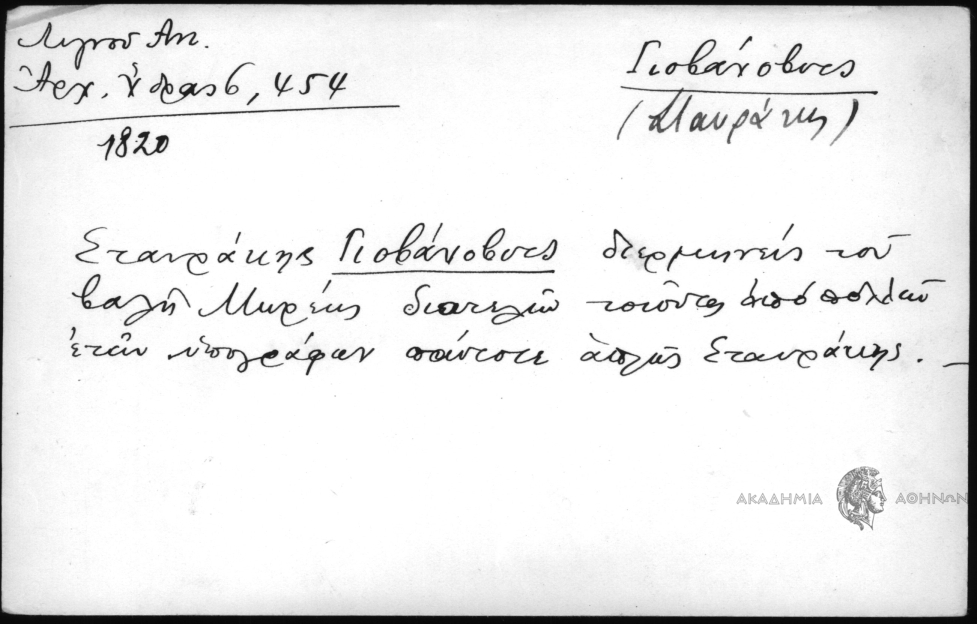 Λιγνού Αντ.
Ἀρχ. Ὕδρας 6, 454
1820
Γιοβάνοβιτς
(Σταυράκης)
Σταυράκης Γιοβάνοβιτς διερμηνεύς τοῦ
βαλῆ Μωρέως διατελῶν τοιοῦτος ἀπό πολλῶν
ἐτῶν ὑπογράφων πάντοτε ἁπλῶς Σταυράκης. –
ΑΚΑΔΗΜΙΑ ΑΘΗΝΩΝ